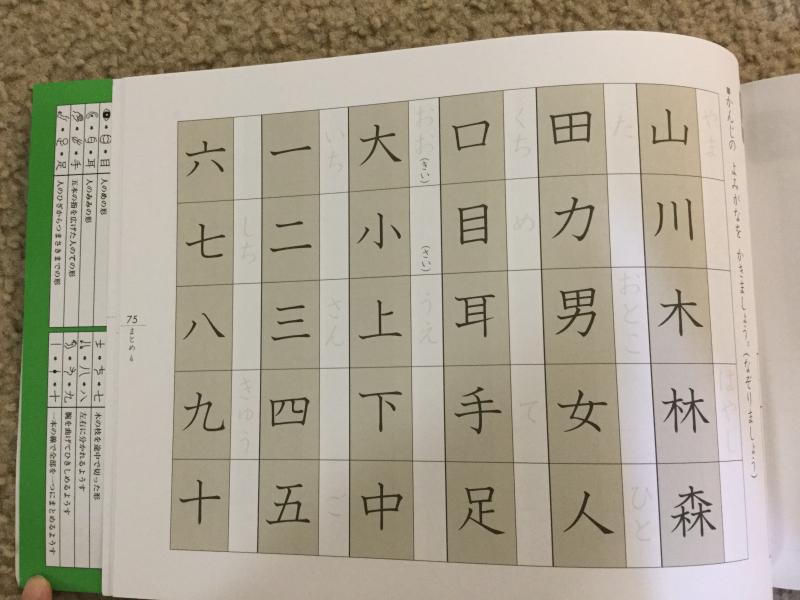 ■かんじの よみがなを かきましょう。(なぞりましょう)
やま はやし
山 川 木 林 森
た おとこ ひと
田 力 男 女 人
くち め て
口 目 耳 手 足
おお(きい) (さい) うえ
大 小 上 下 中
いち さん ご
一 二 三 四 五
しち きゅう
六 七 八 九 十
75
まとめ
目 人のめの形
耳 人のみみの形
手 五本の指を広げた人のての形
足 人のひざからつまさきまでの形
七 木の枝を途中で切った形
八 左右に分かれるようす
九 腕を曲げてひきしめるようす
十 一本の線で全部を一つにまとめるようす